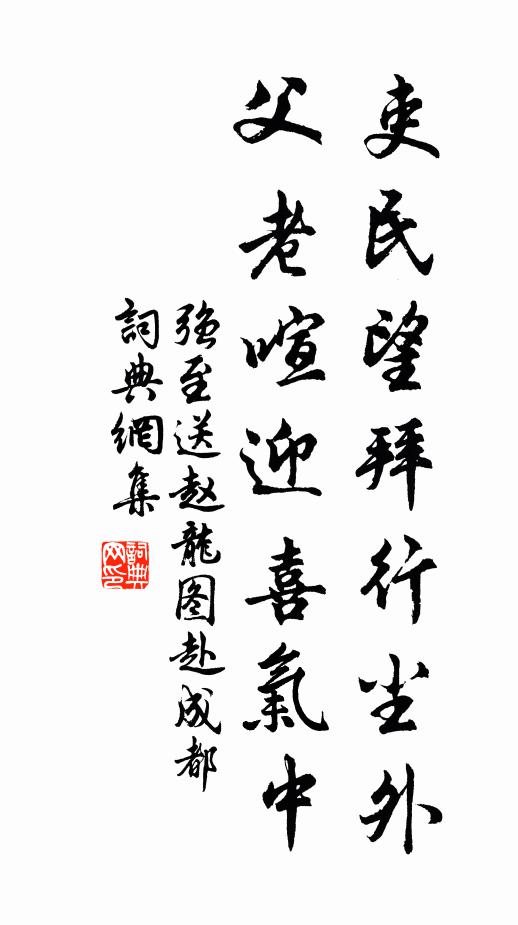 吏民望拜行尘外
父老喧迎喜氣中
强至送赵龍图赴成都
詞典網集
詞典网印